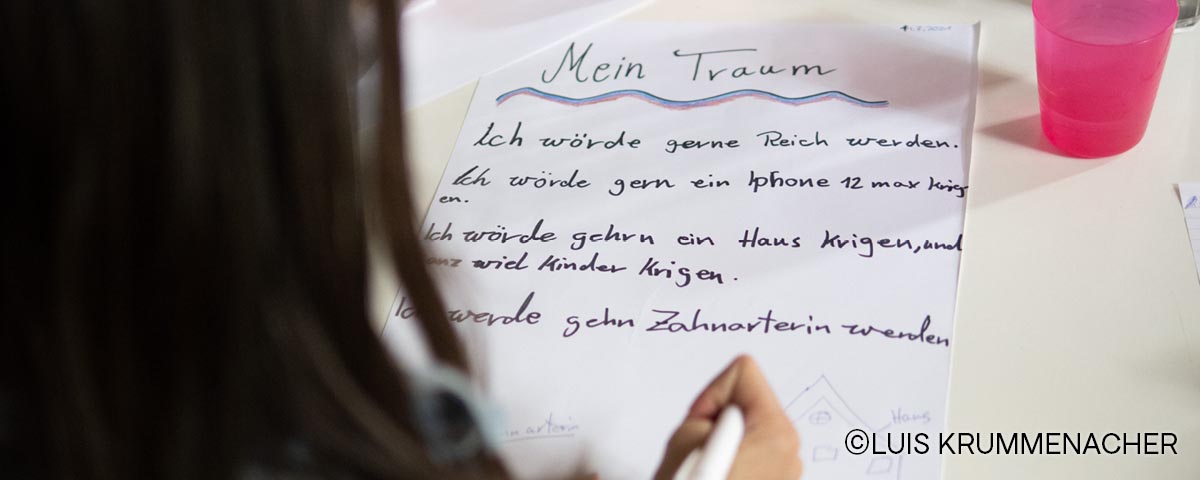 Mein Traum
Ich wörde gerne Reich werden.
Ich wörde gern ein Iphone 12 max krieg
en.
Ich wörde gehrn ein Haus krigen, und
wiel Kinder Krigen.
werde gehn Zahnarterin werden
Haus
©LUIS KRUMMENACHER